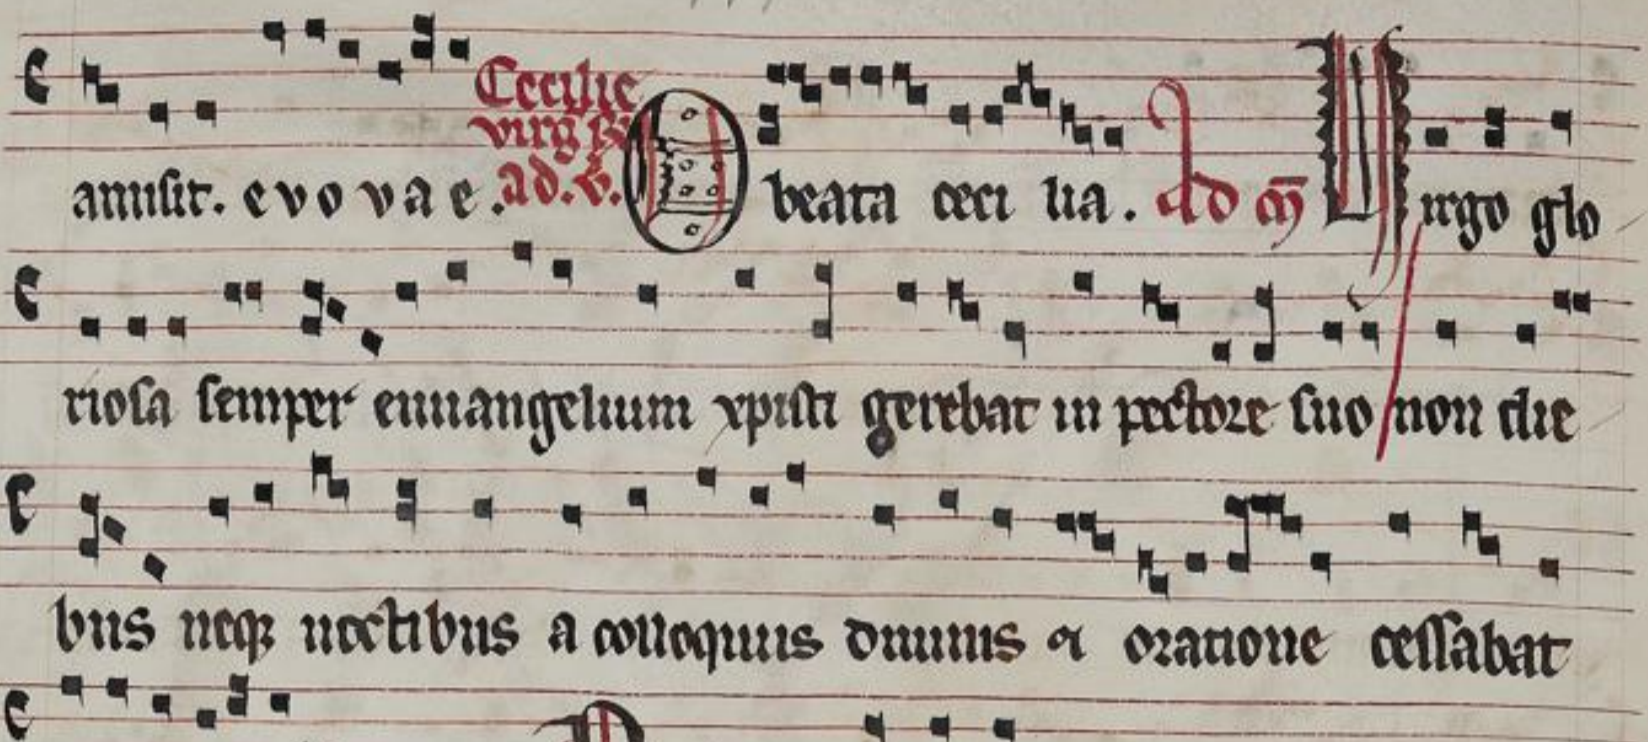 amisit. evovae. Cecilie
virg
ad. v. O beata cecilia. Ad m Virgo glo
riosa semper euuangelium xpisti gerebat in pectore suo non die
bus neqz noctibus a colloquiis diuinis et oratione cessabat